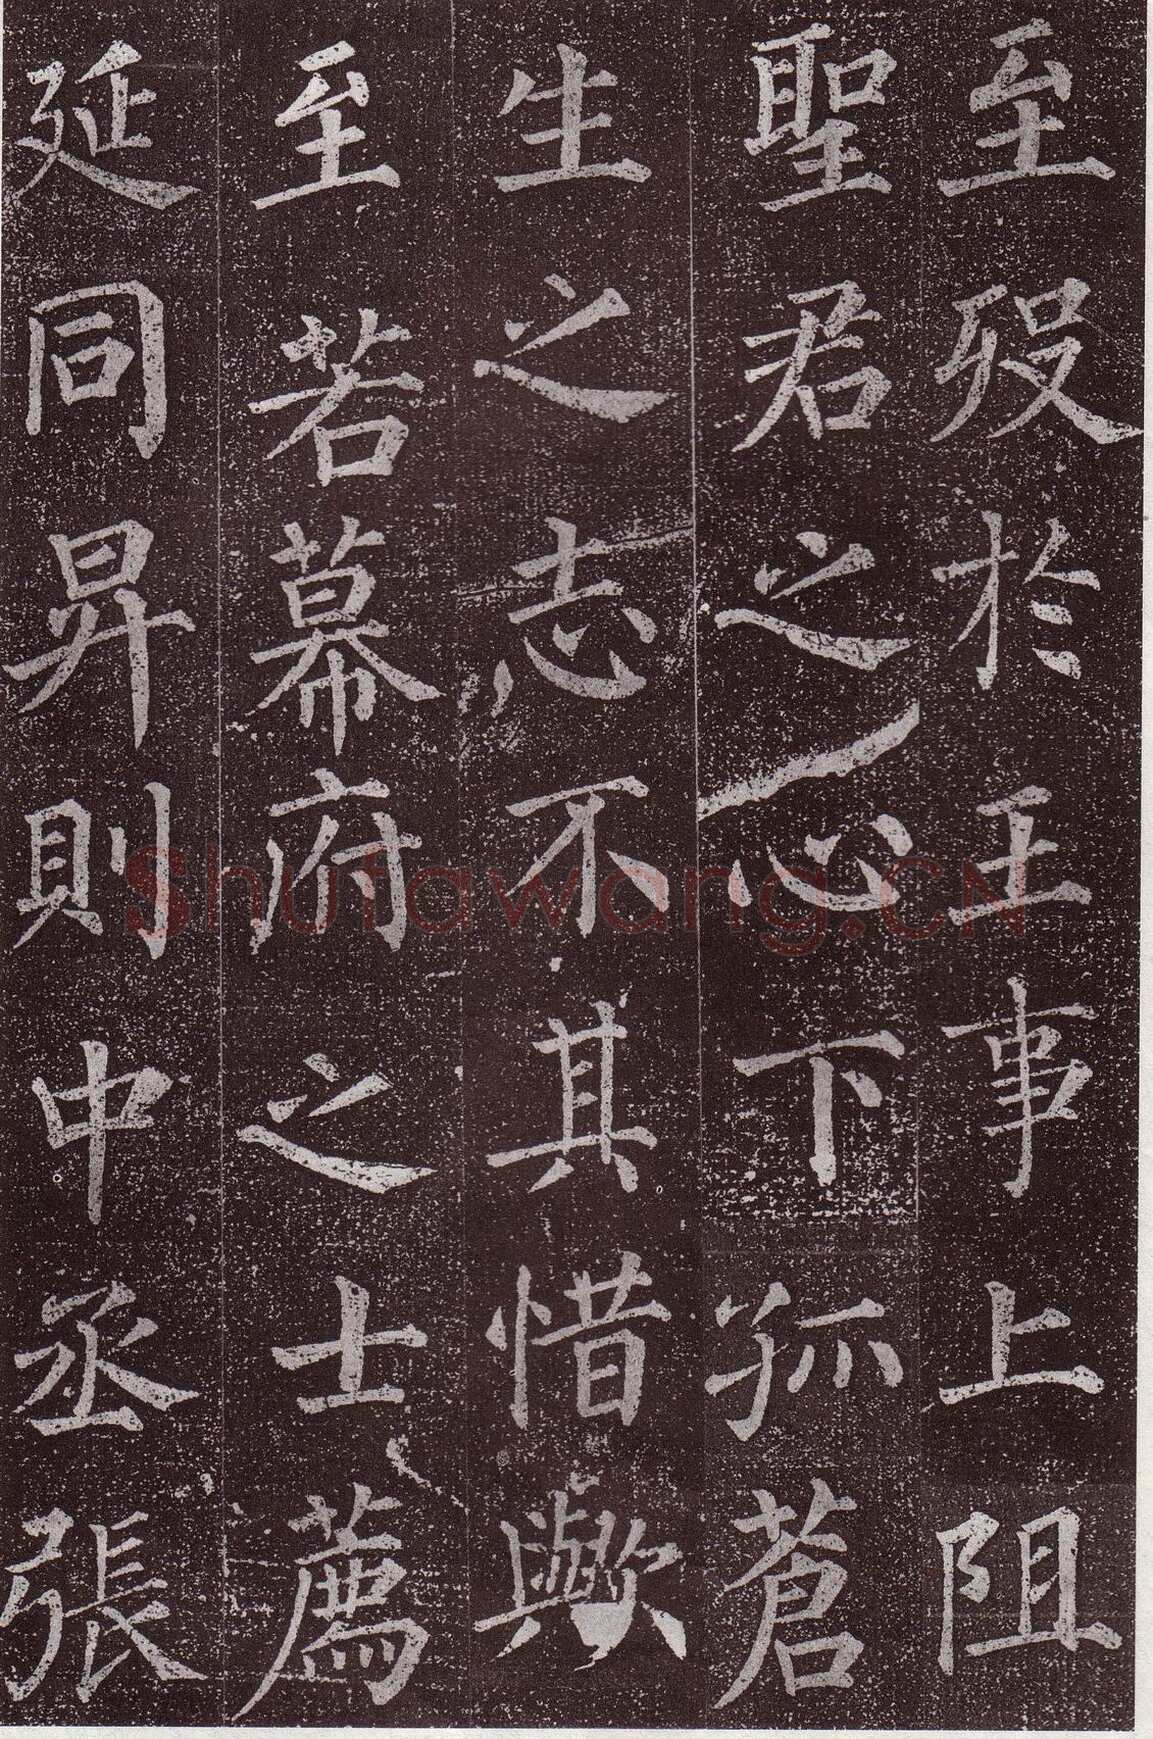 至歿於王事上阻
聖君之心下孤蒼
生之志不其惜歟
至若幕府之士薦
延同昇則中丞張
Shufawang.CN